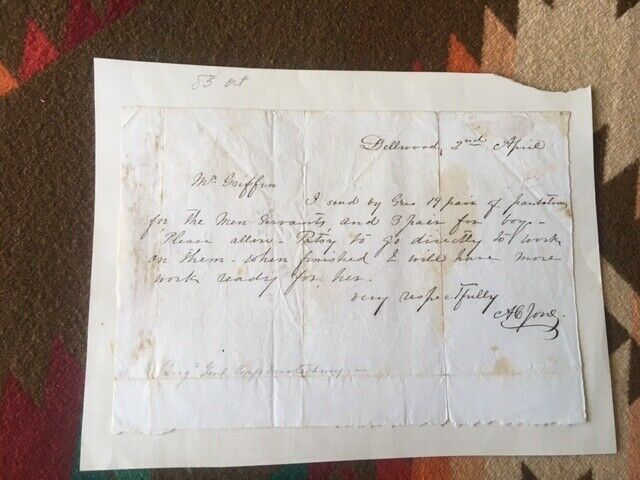 83 Oct
Dellwood, 2nd April
Mr. Griffin
I send by Gus 19 pair of pantaloons
for the Men Servants and 3 pair for boys -
Please allow - Patsy to go directly to work
on them - when finished I will have more
work ready for her.
very respectfully
A C Jones.
Brigr Genl